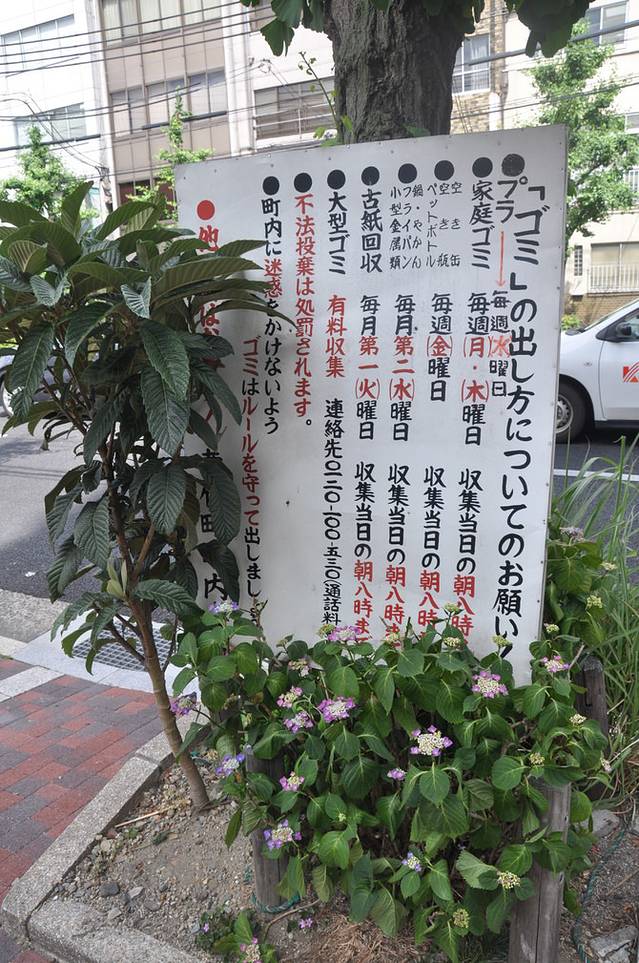 「ゴミ」の出し方についてのお願い
●プラ→毎週㊌曜日
●家庭ゴミ 毎週㊊・㊍曜日 収集当日の朝八時
●空き缶 空き瓶 ペットボトル 毎週㊎曜日 収集当日の朝八
●鍋・やかん フライパン 小型金属類 毎月第二㊌曜日 収集当日の朝八時ま
●古紙回収 毎月第一㊋曜日 収集当日の朝八時ま
●大型ゴミ 有料収集 連絡先〇一二〇-一〇〇-五三〇(通話料
不法投棄は処罰されます。
●町内に迷惑をかけないよう
ゴミはルールを守って出しまし
●他 は 内